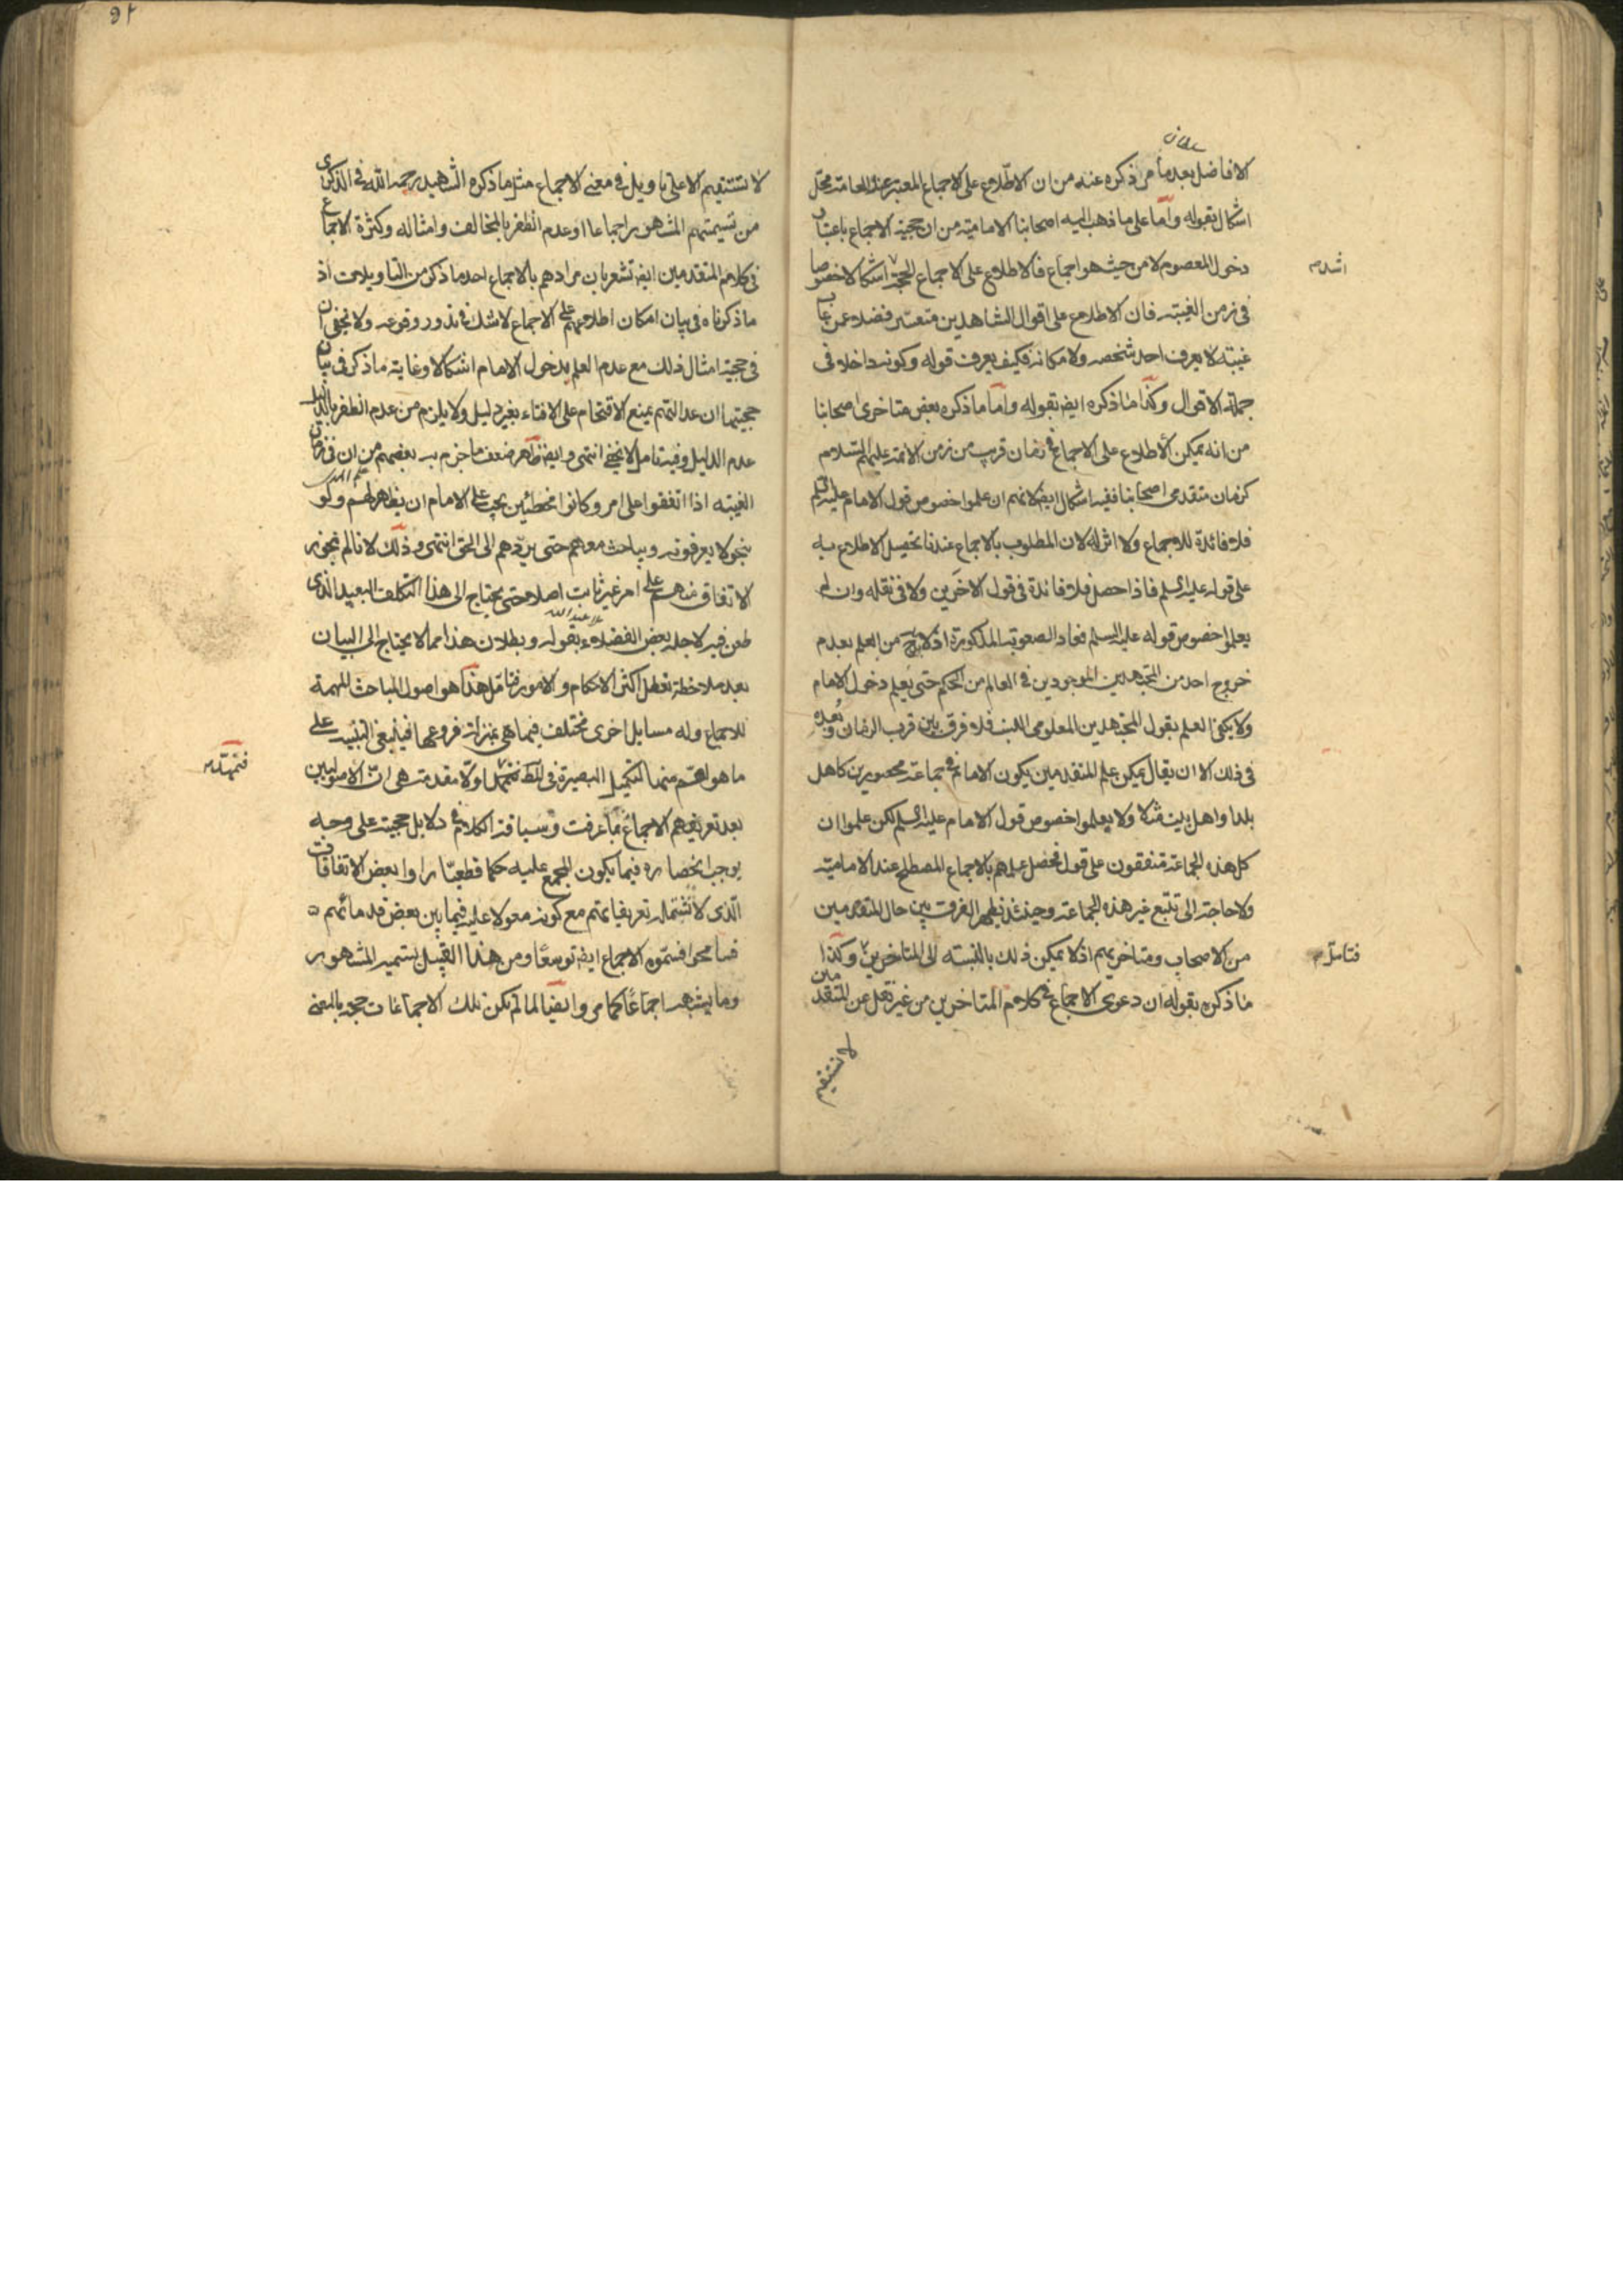 سلطان
الافاضل بعد ما مر ذكره عنه من ان الاطلاع على الاجماع المعتبر عند العامة محل
اشكال بقوله واما على ما ذهب اليه اصحابنا الامامية من ان حجية الاجماع باعتبار
دخول المعصوم لا من حيث هو اجماع فالاطلاع على الاجماع الحجة اشكالا خصوصا
اشد م
فى زمن الغيبة فان الاطلاع على اقوال الشاهدين متعسر فضلا عن غايب
غيبة لا يعرف احد شخصه ولا مكانه فكيف يعرف قوله وكونه داخلا فى
جملة الاقوال وكذا ما ذكره ايض بقوله واما ما ذكره بعض متاخرى اصحابنا
من انه يمكن الاطلاع على الاجماع فى زمان قريب من زمن الائمة عليهم السلام
كزمان متقدمى اصحابنا ففيه اشكال ايض لانهم ان علموا خصوص قول الامام عليه السلم
فلا فائدة للاجماع ولا اثر له لان المطلوب بالاجماع عندنا تحصيل الاطلاع به
على قوله عليه السلم فاذا حصل فلا فائدة فى قول الاخرين ولا فى نقله وان لم
يعلموا خصوص قوله عليه السلم فعاد الصعوبة المذكورة اذ لا بد ح من العلم بعدم
خروج احد من المجتهدين الموجودين فى العالم من الحكم حتى يعلم دخول الامام
ولا يكفى العلم بقول المجتهدين المعلومى النسب فلا فرق بين قرب الزمان وبعده
فى ذلك الا ان يقال يمكن علم المتقدمين بكون الامام فى جماعة محصورين كاهل
بلد او اهل بيت مثلا ولا يعلموا خصوص قول الامام عليه السلم لكن علموا ان
كل هذه الجماعة متفقون على قول فحصل علمهم بالاجماع المصطلح عند الامامية
ولا حاجة الى تتبع غير هذه الجماعة وحينئذ يظهر الفرق بين حال المتقدمين
من الاصحاب ومتاخريهم اذ لا يمكن ذلك بالنسبة الى المتاخرين وكذا
فتامل م
ما ذكره بقوله ان دعوى الاجماع فى كلام المتاخرين من غير نقل عن المتقدمين
لا تستقيم
لا تستقيم الا على تاويل فى معنى الاجماع مثل ما ذكره الشهيد رحمه الله فى الذكرى
من تسميتهم المشهور اجماعا او عدم الظفر بالمخالف وامثاله وكثرة الاجماع
فى كلام المتقدمين ايض تشعر بان مرادهم بالاجماع احد ما ذكر من التاويلات اذ
ما ذكرناه فى بيان امكان اطلاعهم على الاجماع لا شك فى ندور وقوعه ولا يخفى ان
فى حجية امثال ذلك مع عدم العلم بدخول الامام اشكالا وغاية ما ذكر فى بيان
حجيتها ان عدالتهم يمنع الاقتحام على الافتاء بغير دليل ولا يلزم من عدم الظفر بالدليل
عدم الدليل وفيه تامل لا يخفى انتهى وايض ظاهر ضعف ما جزم به بعضهم من ان فى زمان
علم الهدى
الغيبة اذا اتفقوا على امر وكانوا مخطئين يجب على الامام ان يظهر لهم ولو
بنحو لا يعرفونه ويباحث معهم حتى يردهم الى الحق انتهى وذلك لانا لم نجوز
الاتفاق منهم على امر غير ثابت اصلا حتى يحتاج الى هذا التكلف البعيد الذى
ملا عبد الله
طعن فيه لاجله بعض الفضلاء بقوله وبطلان هذا مما لا يحتاج الى البيان
بعد ملاحظة تعطل اكثر الاحكام والامور فتامل هذا هو اصول المباحث المهمة
للاجماع وله مسايل اخرى مختلف فيها هى بمنزلة فروعها فينبغى التنبيه على
ما هو اهم منها لتكميل البصيرة فى اولا مقدمة هى ان الاصوليين
فنمهد م
بعد تعريفهم الاجماع بما عرفت وسياقة الكلام فى دلايل حجيته على وجه
يوجب انحصاره فيما يكون المجمع عليه حكما قطعيا راوا بعض الاتفاقات
الذى لا تشتمله تعريفاتهم مع كونه معولا عليه فيما بين بعض قدمائهم
فسامحوا فسموه الاجماع ايض توسعا ومن هذا القبيل تسمية المشهور
وما يشبهه اجماعا كما مر وايضا لما لم يكن تلك الاجماعات حجة بالمعنى